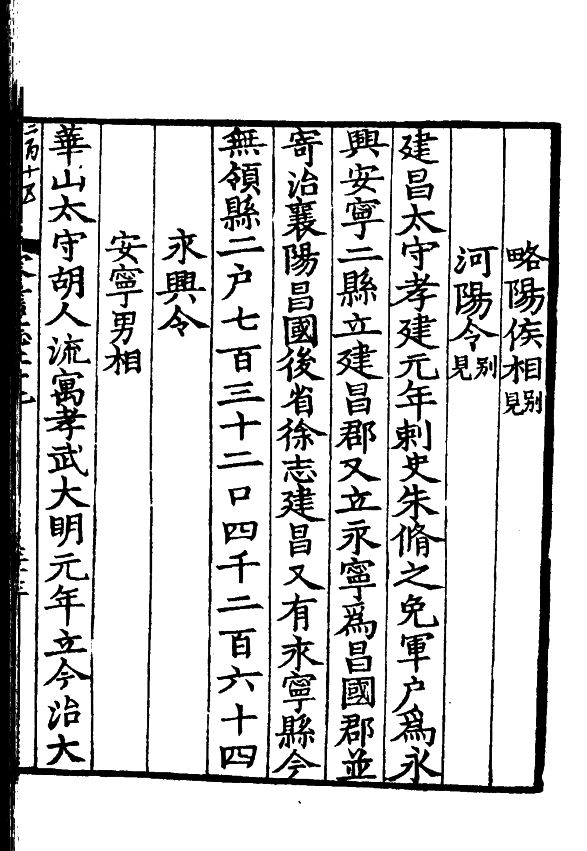 略陽侯相别見
河陽令别見
建昌太守孝建元年刺史朱脩之免軍户爲永
興安寧二縣立建昌郡又立永寧爲昌國郡並
寄治襄陽昌國後省徐志建昌又有永寧縣今
無領縣二户七百三十二口四千二百六十四
永興令
安寧男相
華山太守胡人流寓孝武大明元年立今治大
二百十五